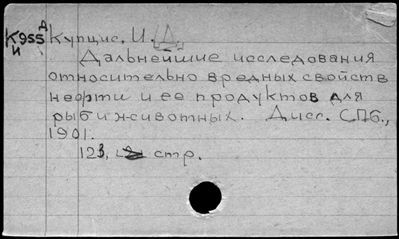 К955Д Купцис, И. Д.
И
Дальнейшие исследования
относительно вредных свойств
нефти и ее продуктов для
рыб и животных. Дисс. СПб.,
1901.
123, стр.